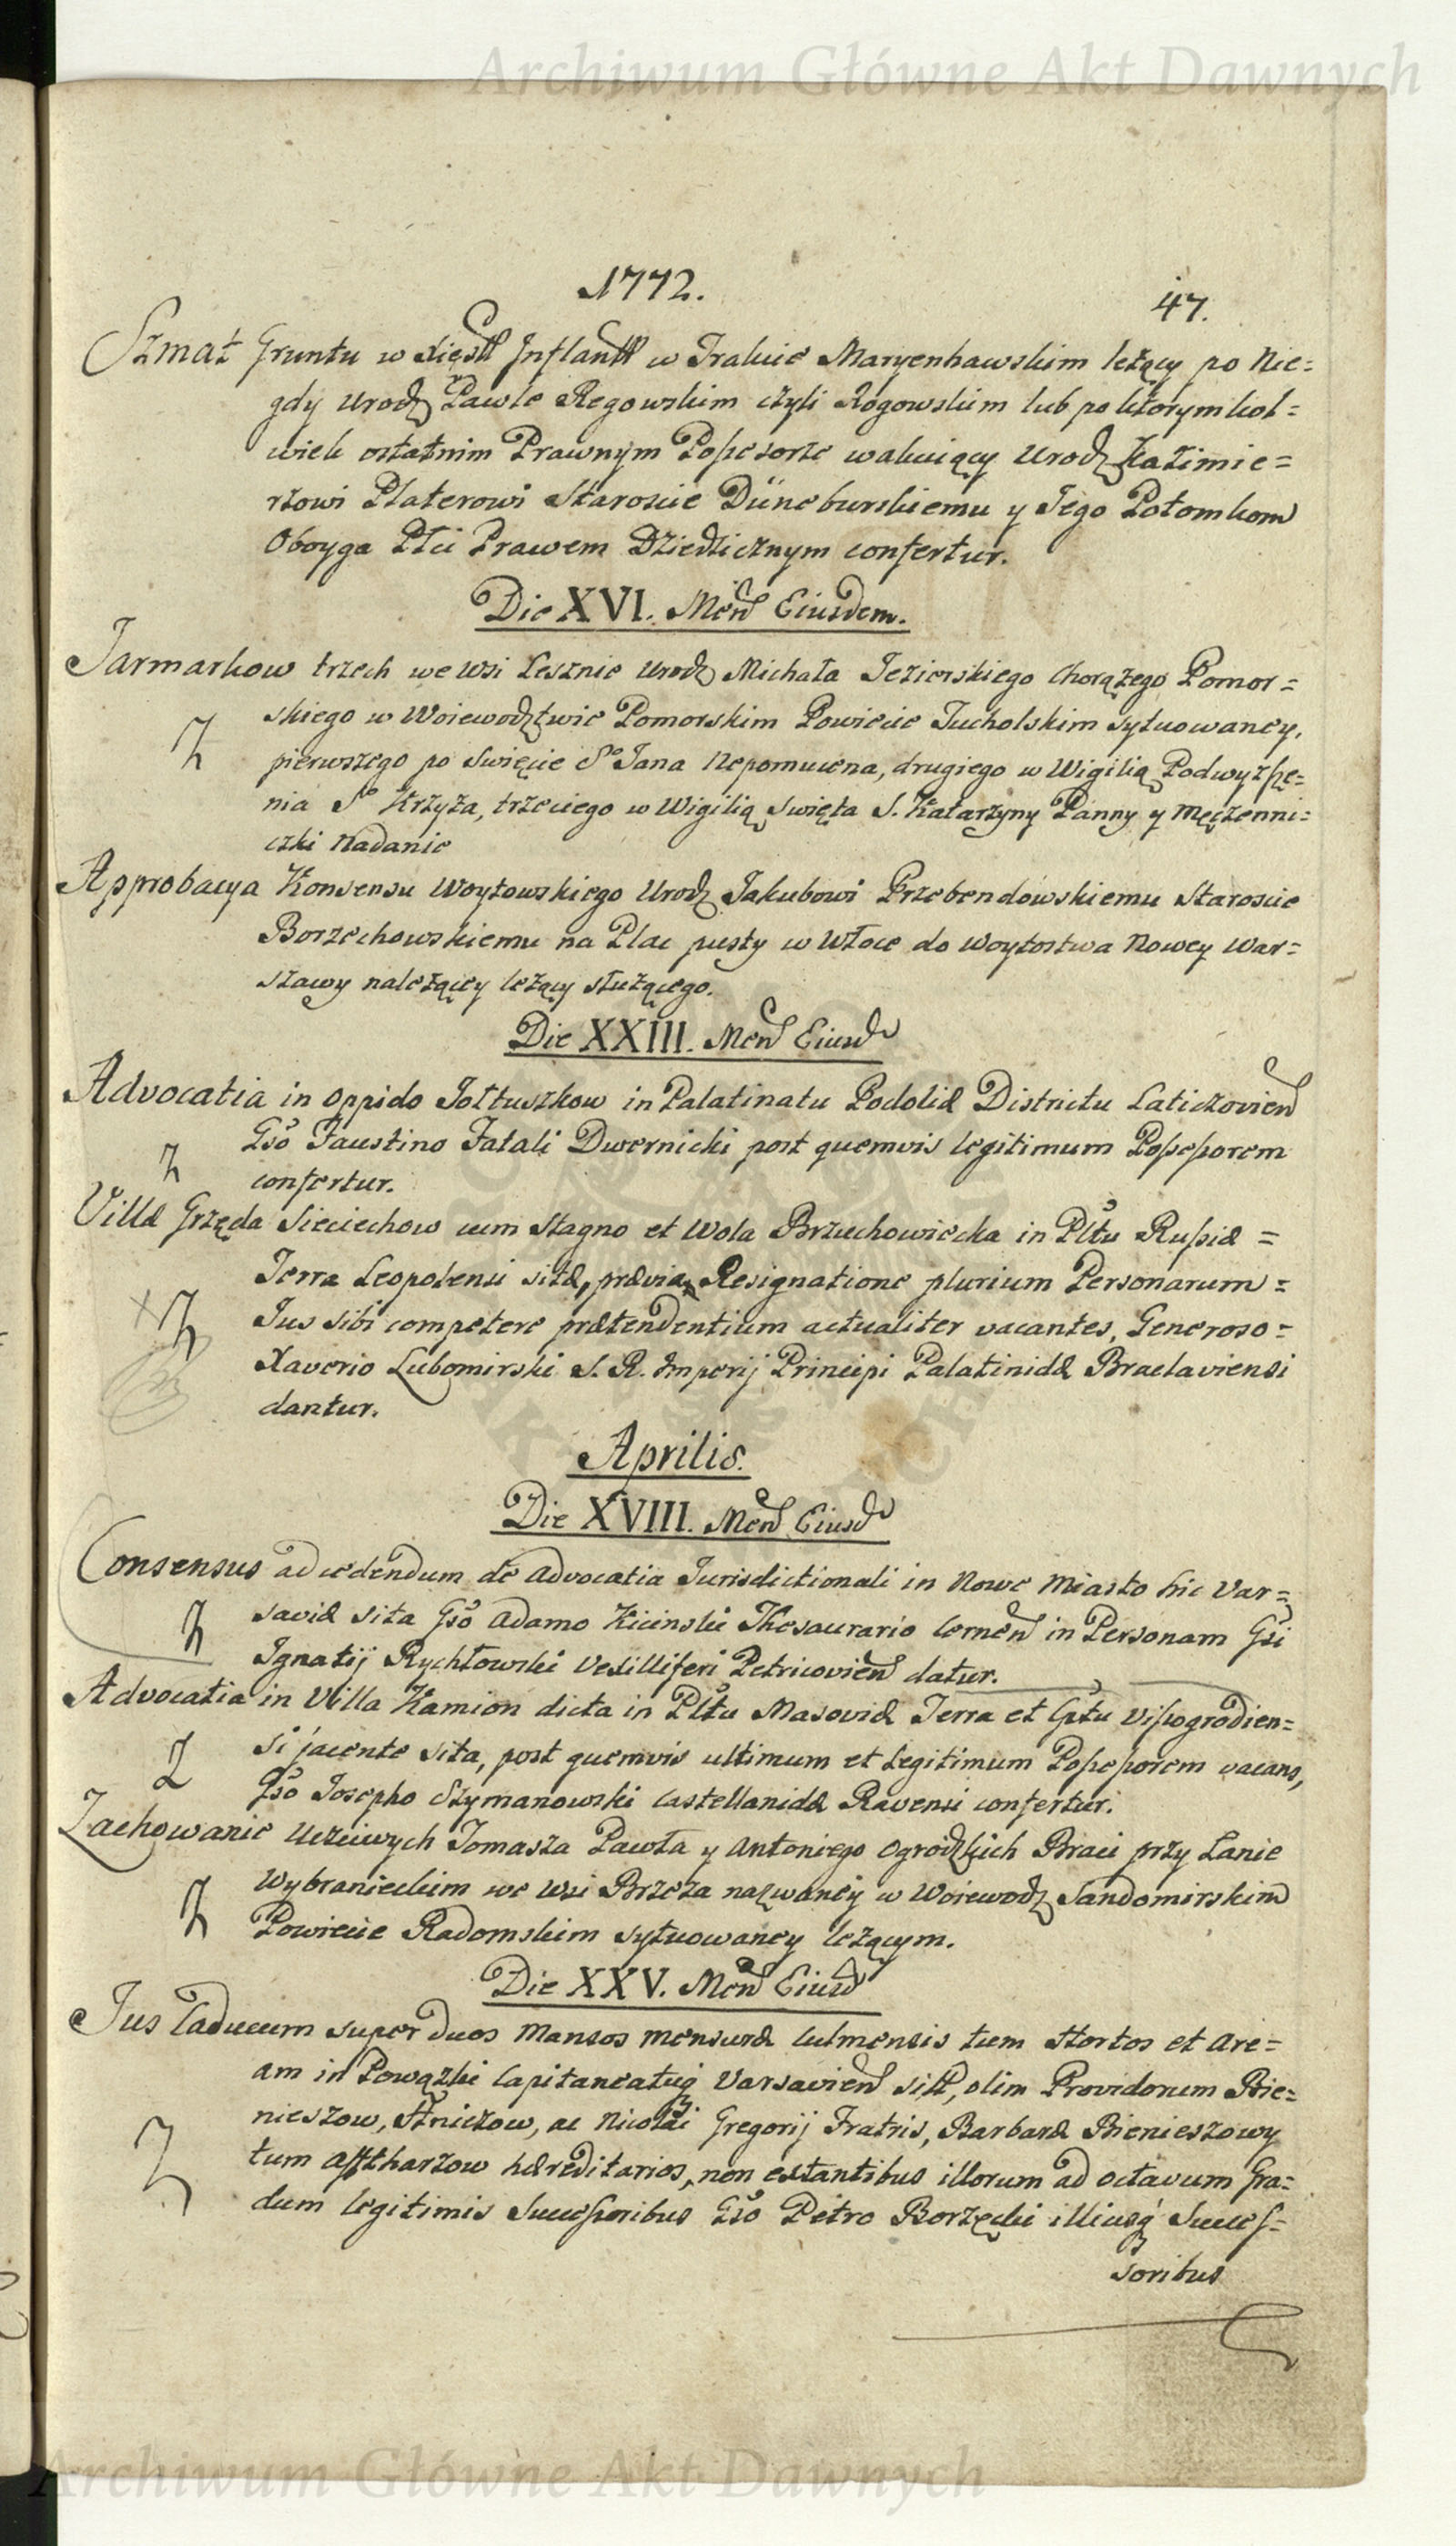 Archiwum Główne Akt Dawnych
1772.
47.
Szmat Gruntu w Xięstt Inflantt w Trakcie Maryenhawskim leżący po Nie=
gdy Urodz Pawle Regowskim czyli Rogowskim lub po ktorymkol=
wiek ostatnim Prawnym Possesorze wakuiący Urodz Kazimie=
rzowi Platerowi Staroscie Düneburskiemu y Jego Potomkom
Oboyga Płci Prawem Dziedzicznym confertur.
Die XVI. Men Eiusdem.
Jarmarkow trzech we Wsi Lesznie Urodz Michała Jezierskiego Chorążego Pomor=
skiego w Woiewodztwie Pomorskim Powiecie Tucholskim sytuowaney,
pierwszego po Swięcie So Jana Nepomucena, drugiego w Wigilią Podwyższe=
nia So Krzyża, trzeciego w Wigilią Swięta S. Katarzyny Panny y Męczenni=
czki Nadanie
Approbacya Konsensu Woytowskiego Urodz Jakubowi Przebendowskiemu Staroscie
Borzechowskiemu na Plac pusty w Włoce do Woytostwa Nowey War=
szawy należącey leżący służącego.
Die XXIII. Men Eiusd
Advocatia in Oppido Jołtuszkow in Palatinatu Podoliæ Districtu Laticzovien
Gso Faustino Fatali Dwernicki post quemvis legitimum Possessorem
confertur.
Villæ Grzęda Sieciechow cum Stagno et Wola Brzuchowiecka in Pltu Russiæ =
Terra Leopolensi sitæ, prævia Resignatione plurium Personarum =
Jus sibi competere prætendentium actualiter vacantes, Generoso =
Xaverio Lubomirski S. R. Imperij Principi Palatinidæ Braclaviensi
dantur.
Aprilis.
Die XVIII. Men Eiusd
Consensus ad cedendum de Advocatia Jurisdictionali in Nowe Miasto hic Var=
saviæ sita Gso Adamo Kicinski Thesaurario Cernen in Personam Gsi
Ignatij Rychłowski Vexilliferi Petricovien datur.
Advocatia in Villa Kamion dicta in Pltu Masoviæ Terra et Cptu Vissogrodien=
si jacente sita, post quemvis ultimum et Legitimum Possessorem vacans,
Gso Josepho Szymanowski Castellanidæ Ravensi confertur.
Zachowanie Uczciwych Tomasza Pawła y Antoniego Ogrodzkich Braci przy Łanie
Wybranieckim we Wsi Brzeza nazwaney w Woiewodz Sandomirskim
Powiecie Radomskim sytuowaney leżącym.
Die XXV. Men Eiusd
Jus Caducum super duos Mansos mensuræ Culmensis tum Hortos et Are=
am in Powązki Capitaneatus Varsavien sitt, olim Providorum Bie=
nieszow, ac Nicolai Gregorij Fratris, Barbaræ Bienieszowy
tum hæreditarios, non extantibus illorum ad octavum Gra=
dum legitimis Successoribus Gso Petro Borzęcki illiusq Succes=
soribus
Archiwum Główne Akt Dawnych